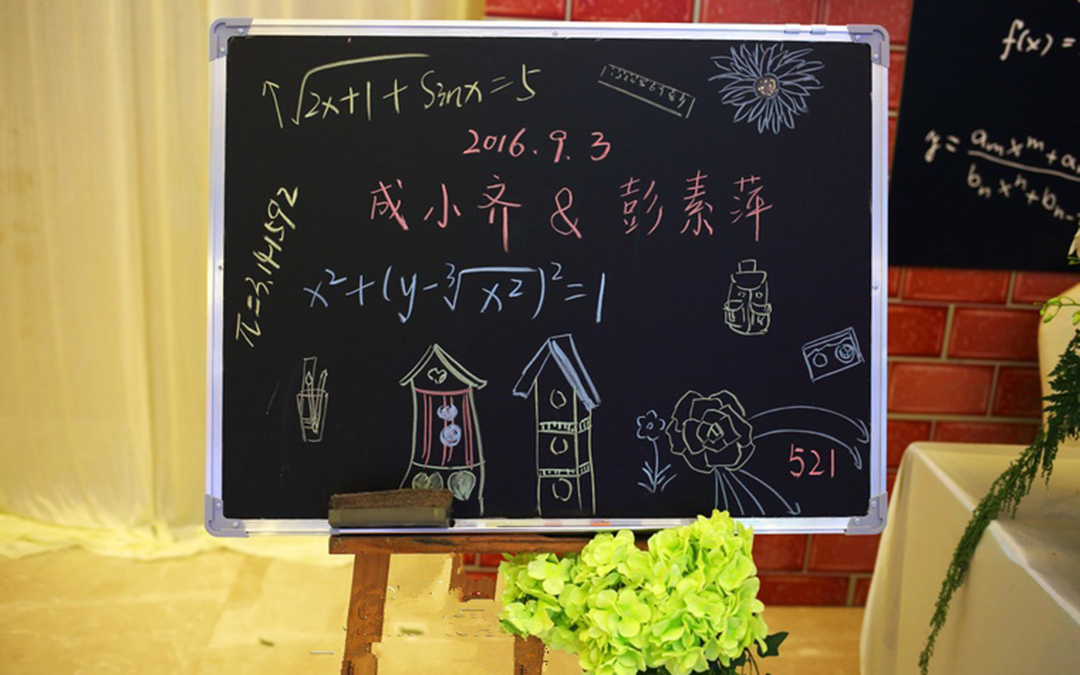 √2x+1 + Sinx = 5
2016.9.3
成小齐 & 彭素萍
π=3.141592
x²+(y-³√x²)²=1
521
f(x)=
y= aₘxᵐ+a
bₙxⁿ+bₙ₋